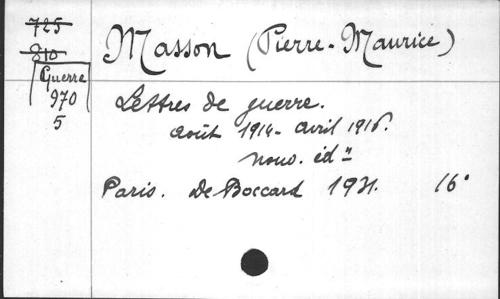 725
810
Guerre
970
5
Masson (Pierre-Maurice)
Lettres de guerre.
août 1914- avril 1916.
nouv. édⁿ
Paris. De Boccard 1931. 16°